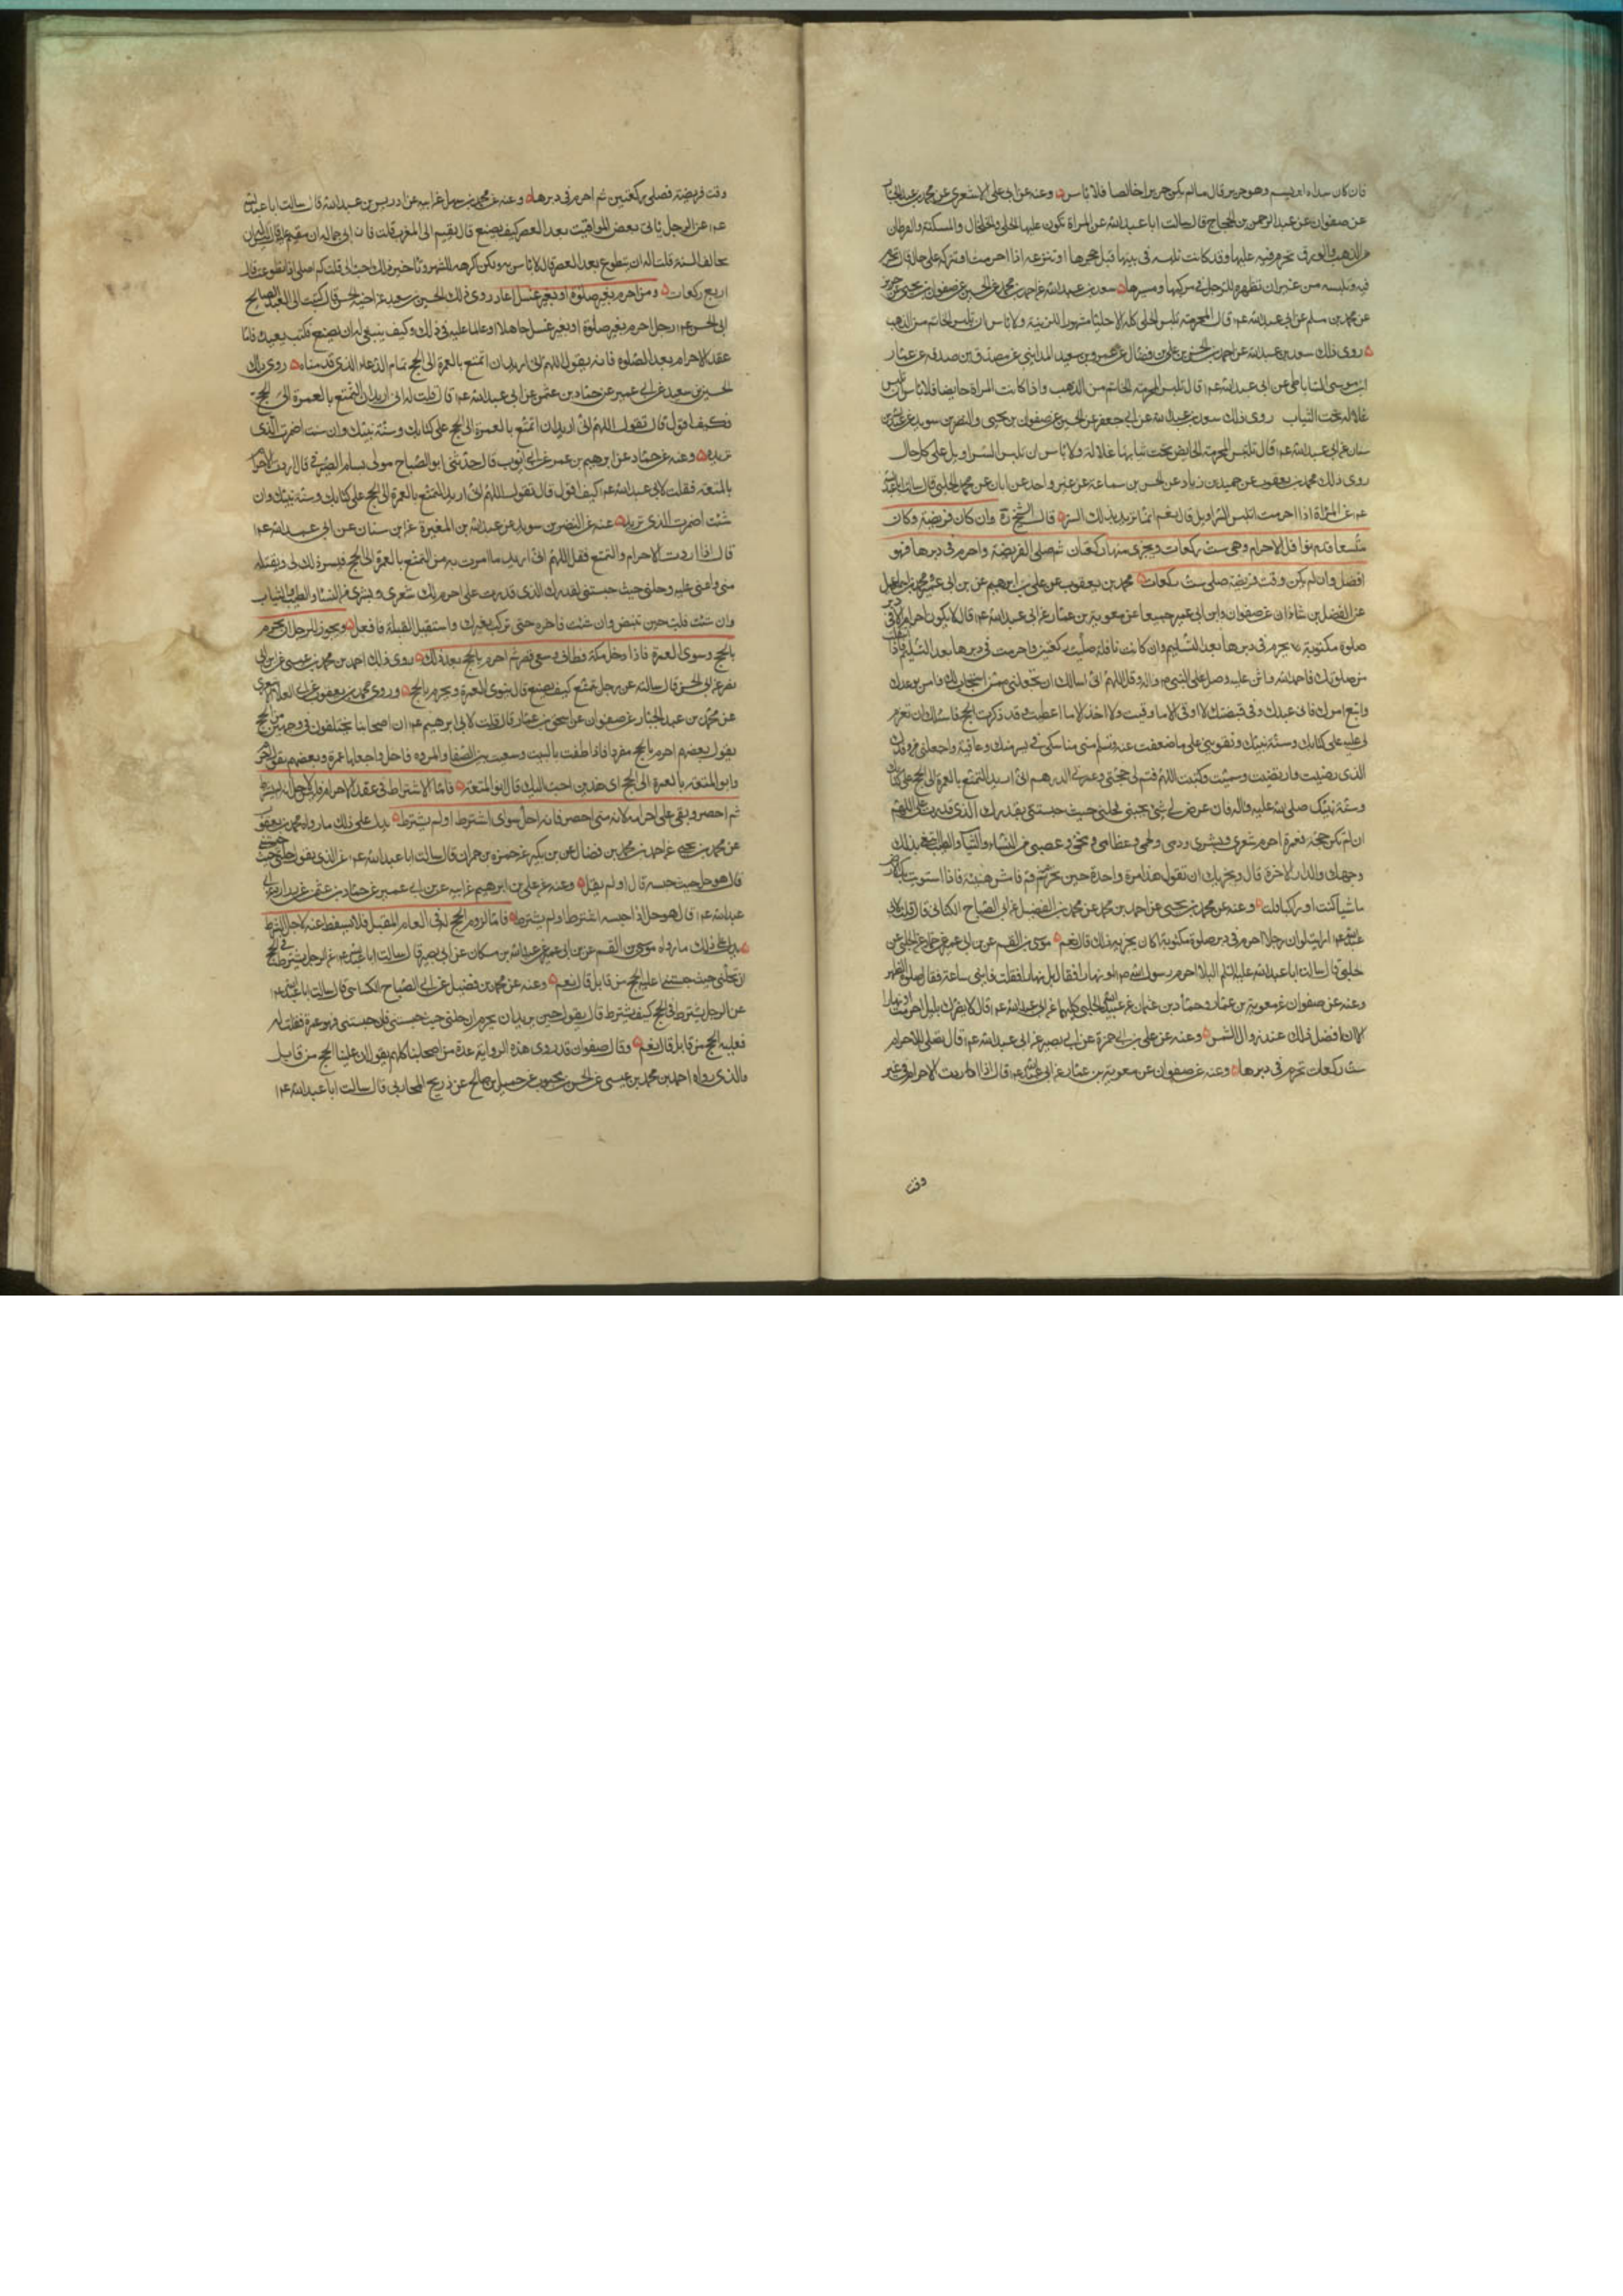 فان كان سداه ابريسم وهو حرير قال ما لم يكن حريرا خالصا فلا باس وعنه عن ابي علي الاشعري عن محمد بن عبد الجبار
عن صفوان عن عبد الرحمن بن الحجاج قال سالت ابا عبد الله عن المراة تكون عليها الحلي والخلخال والمسكة والقرطان
من الذهب والورق تحرم فيه وهو عليها وقد كانت تلبسه في بيتها قبل حجها او تنزعه اذا احرمت او تتركه على حاله قال تحرم
فيه وتلبسه من غير ان تظهره للرجل في مركبها ومسيرها سعد بن عبد الله عن احمد بن محمد عن الحسين عن صفوان بن يحيى عن حريز
عن محمد بن مسلم عن ابي عبد الله ع م قال المحرمة تلبس الحلي كله الا حليا مشهورا للزينة ولا باس ان تلبس الخاتم من الذهب
روى ذلك سعد بن عبد الله عن احمد بن الحسن بن علي بن فضال عن عمرو بن سعيد المدايني عن مصدق بن صدقه عن عمار
ابن موسى الساباطي عن ابي عبد الله ع م قال تلبس المحرمة الخاتم من الذهب واذا كانت المراة حايضا فلا باس ان تلبس
غلالة تحت الثياب روى ذلك سعد بن عبد الله عن ابي جعفر عن الحسين عن صفوان بن يحيى والنضر بن سويد عن عبد الله بن
سنان عن ابي عبد الله ع م قال تلبس المحرمة الحايض تحت ثيابها غلالة ولا باس ان تلبس السراويل على كل حال
روى ذلك محمد بن يعقوب عن حميد بن زياد عن الحسن بن سماعة عن غير واحد عن ابان عن محمد الحلبي قال سالت ابا عبد الله
ع م عن المراة اذا احرمت اتلبس السراويل قال نعم انما تريد بذلك الستر قال الشيخ ره وان كان فريضة وكان
متسعا قدم نوافل الاحرام وهي ست ركعات ويجزي منها ركعتان ثم صلى الفريضة واحرم في دبرها فهو
افضل وان لم يكن وقت فريضة صلى ست ركعات محمد بن يعقوب عن علي بن ابرهيم عن ابيه عن ابن ابي عمير ومحمد بن اسماعيل
عن الفضل بن شاذان عن صفوان وابن ابي عمير جميعا عن معوية بن عمار عن ابي عبد الله ع م قال لا يكون احرام الا في دبر
صلوة مكتوبة تحرم في دبرها بعد التسليم وان كانت نافلة صليت ركعتين واحرمت في دبرها بعد التسليم فاذا انفتلت
من صلوتك فاحمد الله واثن عليه وصل على النبي واله وقل اللهم اني اسالك ان تجعلني ممن استجاب لك وامن بوعدك
واتبع امرك فاني عبدك وفي قبضتك لا اوقى الا ما وقيت ولا اخذ الا ما اعطيت وقد ذكرت الحج فاسالك ان تعزم
لي عليه على كتابك وسنة نبيك وتقويني على ما ضعفت عنه وتسلم مني مناسكي في يسر منك وعافية واجعلني من وفدك
الذي رضيت وارتضيت وسميت وكتبت اللهم فتمم لي حجتي وعمرتي اللهم اني اريد التمتع بالعمرة الى الحج على كتابك
وسنة نبيك صلى الله عليه واله فان عرض لي شئ يحبسني فحلني حيث حبستني بقدرك الذي قدرت علي اللهم
ان لم تكن حجة فعمرة احرم شعري وبشري ودمي ولحمي وعظامي ومخي وعصبي من النساء والثياب والطيب ابتغي بذلك
وجهك والدار الاخرة قال ويجزيك ان تقول هذا مرة واحدة حين تحرم ثم قم فامش هنيئة فاذا استوت بك الارض
ماشيا كنت او راكبا فلب وعنه عن محمد بن يحيى عن احمد بن محمد عن محمد بن الفضيل عن ابي الصباح الكناني قال قلت لابي
عبد الله ع م ارايت لو ان رجلا احرم في دبر صلوة مكتوبة اكان يجزيه ذلك قال نعم موسى بن القسم عن ابن ابي عمير عن حماد عن الحلبي عن
قال سالت ابا عبد الله عليه السلم اليلا احرم رسول الله ص ام نهارا فقال بل نهارا فقلت فاية ساعة فقال صلوة الظهر
وعنه عن صفوان عن معوية بن عمار وحماد بن عثمان عن عبيد الله الحلبي كليهما عن ابي عبد الله ع م قال لا يضرك بليل احرمت او نهار
الا ان افضل ذلك عند زوال الشمس وعنه عن علي بن ابي حمزة عن ابي بصير عن ابي عبد الله ع م قال تصلي للاحرام
ست ركعات تحرم في دبرها وعنه عن صفوان عن معوية بن عمار عن ابي عبد الله ع م قال اذا اردت الاحرام في غير
وقت
وقت فريضة فصلي ركعتين ثم احرم في دبرها وعنه عن محمد بن سهل عن ابيه عن ادريس بن عبد الله قال سالت ابا عبد الله
ع م عن الرجل ياتي بعض المواقيت بعد العصر كيف يصنع قال يقيم الى المغرب قلت فان ابى جماله ان يقيم عليه قال ليس له ان
يخالف السنة قلت اله ان يتطوع بعد العصر قال لا باس به ولكن اكرهه للشهرة وتاخير ذلك احب الي قلت كم اصلي اذا تطوعت قال
اربع ركعات ومن احرم بغير صلوة او بغير غسل اعاد روى ذلك الحسين بن سعيد عن اخيه الحسن قال كتبت الى العبد الصالح
ابي الحسن ع م رجل احرم بغير صلوة او بغير غسل جاهلا او عالما عليه في ذلك وكيف ينبغي له ان يصنع فكتب يعيده فاما
عقد الاحرام بعد الصلوة فانه يقول اللهم اني اريد ان اتمتع بالعمرة الى الحج تمام الدعاء الذي قدمناه روى ذلك
الحسين بن سعيد عن ابن ابي عمير عن حماد بن عثمن عن ابي عبد الله ع م قال قلت له اني اريد ان اتمتع بالعمرة الى الحج
فكيف اقول قال تقول اللهم اني اريد ان اتمتع بالعمرة الى الحج على كتابك وسنة نبيك وان شئت اضمرت الذي
تريد وعنه عن حماد عن ابرهيم بن عمر عن ابي ايوب قال حدثني ابو الصباح مولى بسام الصيرفي قال اردت الاحرام
بالمتعة فقلت لابي عبد الله ع م كيف اقول قال تقول اللهم اني اريد التمتع بالعمرة الى الحج على كتابك وسنة نبيك وان
شئت اضمرت الذي تريد عنه عن النضر بن سويد عن عبد الله بن المغيرة عن ابن سنان عن ابي عبد الله ع م
قال اذا اردت الاحرام والتمتع فقل اللهم اني اريد ما امرت به من التمتع بالعمرة الى الحج فيسر ذلك لي وتقبله
مني واعني عليه وحلني حيث حبستني بقدرك الذي قدرت علي احرم لك شعري وبشري من النساء والطيب والثياب
وان شئت فلب حين تنهض وان شئت فاخره حتى تركب بعيرك واستقبل القبلة فافعل ويجوز للرجل ان يحرم
بالحج وينوي العمرة فاذا دخل مكة وطاف وسعى قصر ثم احرم بالحج بعد ذلك روى ذلك احمد بن محمد بن عيسى عن ابن ابي
نصر عن ابي الحسن قال سالته عن رجل تمتع كيف يصنع قال ينوي العمرة ويحرم بالحج وروى محمد بن يعقوب عن ابي علي الاشعري
عن محمد بن عبد الجبار عن صفوان عن اسحق بن عمار قال قلت لابي ابرهيم ع م ان اصحابنا يختلفون في وجهين من الحج
يقول بعضهم احرم بالحج مفردا فاذا طفت بالبيت وسعيت بين الصفا والمروه فاحل واجعلها عمرة وبعضهم يقول احرم
وانو المتعة بالعمرة الى الحج اي هذين احب اليك قال انو المتعة فاما الاشتراط في عقد الاحرام فلاجل انه ان اشترط
ثم احصر وبقي على احرامه لانه متى احصر فانه احل سواء اشترط او لم يشترط يدل على ذلك ما رواه محمد بن يعقوب
عن محمد بن يحيى عن احمد بن محمد بن فضال عن ابن بكير عن حمزة بن حمران قال سالت ابا عبد الله ع م عن الذي يقول حلني حيث حبستني
قال هو حل حيث حبسه قال او لم يقل وعنه عن علي بن ابرهيم عن ابيه عن ابن ابي عمير عن حماد بن عثمن عن زرارة عن ابي
عبد الله ع م قال هو حل اذا حبسه اشترط او لم يشترط فاما لزوم الحج له في العام المقبل فلا يسقط عنه لاجل الشرط
يدل على ذلك ما رواه موسى بن القسم عن ابن ابي عمير عن عبد الله بن مسكان عن ابي بصير قال سالت ابا عبد الله ع م عن الرجل يشترط في الحج
ان حلني حيث حبستني عليه الحج من قابل قال نعم وعنه عن محمد بن فضيل عن ابي الصباح الكناني قال سالت ابا عبد الله ع م
عن الرجل يشترط في الحج كيف يشترط قال يقول حين يريد ان يحرم ان حلني حيث حبستني فان حبستني فهو عمرة فقلت له
فعليه الحج من قابل قال نعم وقال صفوان قد روى هذه الرواية عدة من اصحابنا كلهم يقول ان عليه الحج من قابل
والذي رواه احمد بن محمد بن عيسى عن الحسن بن محبوب عن جميل بن صالح عن ذريح المحاربي قال سالت ابا عبد الله ع م